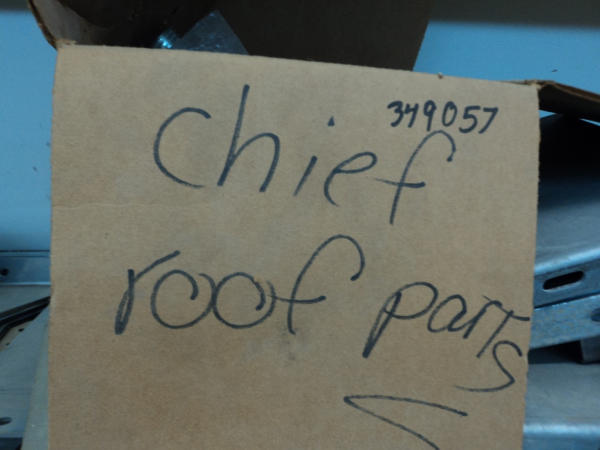 349057
chief
roof parts